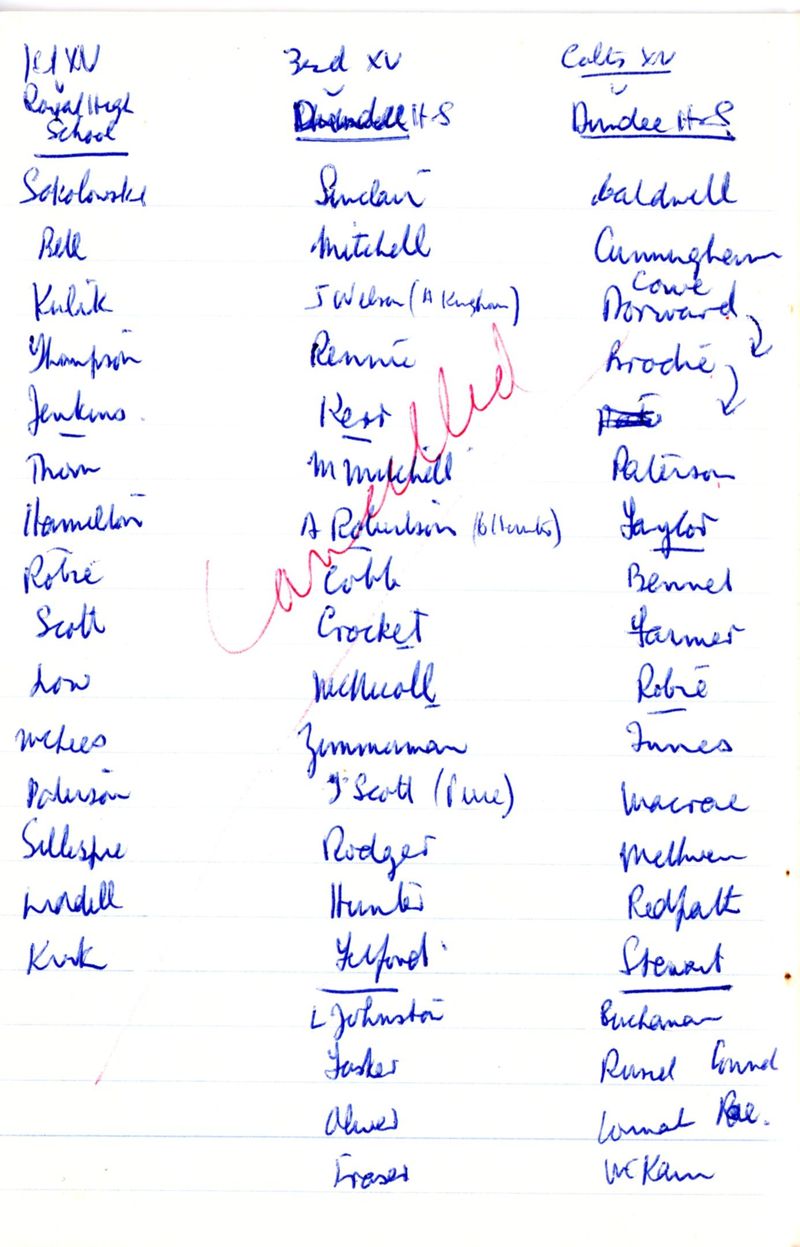 1st XV
v
Royal High
School
Sokolowski
Bell
Kulik
Thompson
Jenkins
Thom
Hamilton
Robie
Scott
Low
McLees
Paterson
Gillespie
Liddell
Kirk
3rd XV
v
H-S
Sinclair
Mitchell
J Wilson (A Kingham)
Rennie
Kerr
M Mitchell
A Robertson
Cobb
Crocket
McNicoll
Zimmerman
J Scott
Rodger
Hunter
Telford
L Johnston
Tasker
Oliver
Fraser
Cancelled
Colts XV
v
Dundee H-S
Caldwell
Cunningham
Cowe
Dorward
Brodie
Paterson
Taylor
Bennet
Farmer
Robie
Innes
Macrae
Methven
Redpath
Stewart
Buchanan
Russel
Rae.